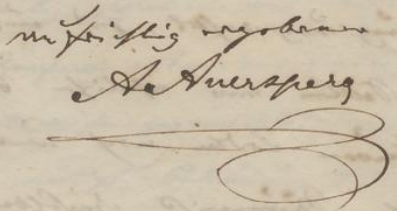 aufrichtig ergebener
A. Auersperg